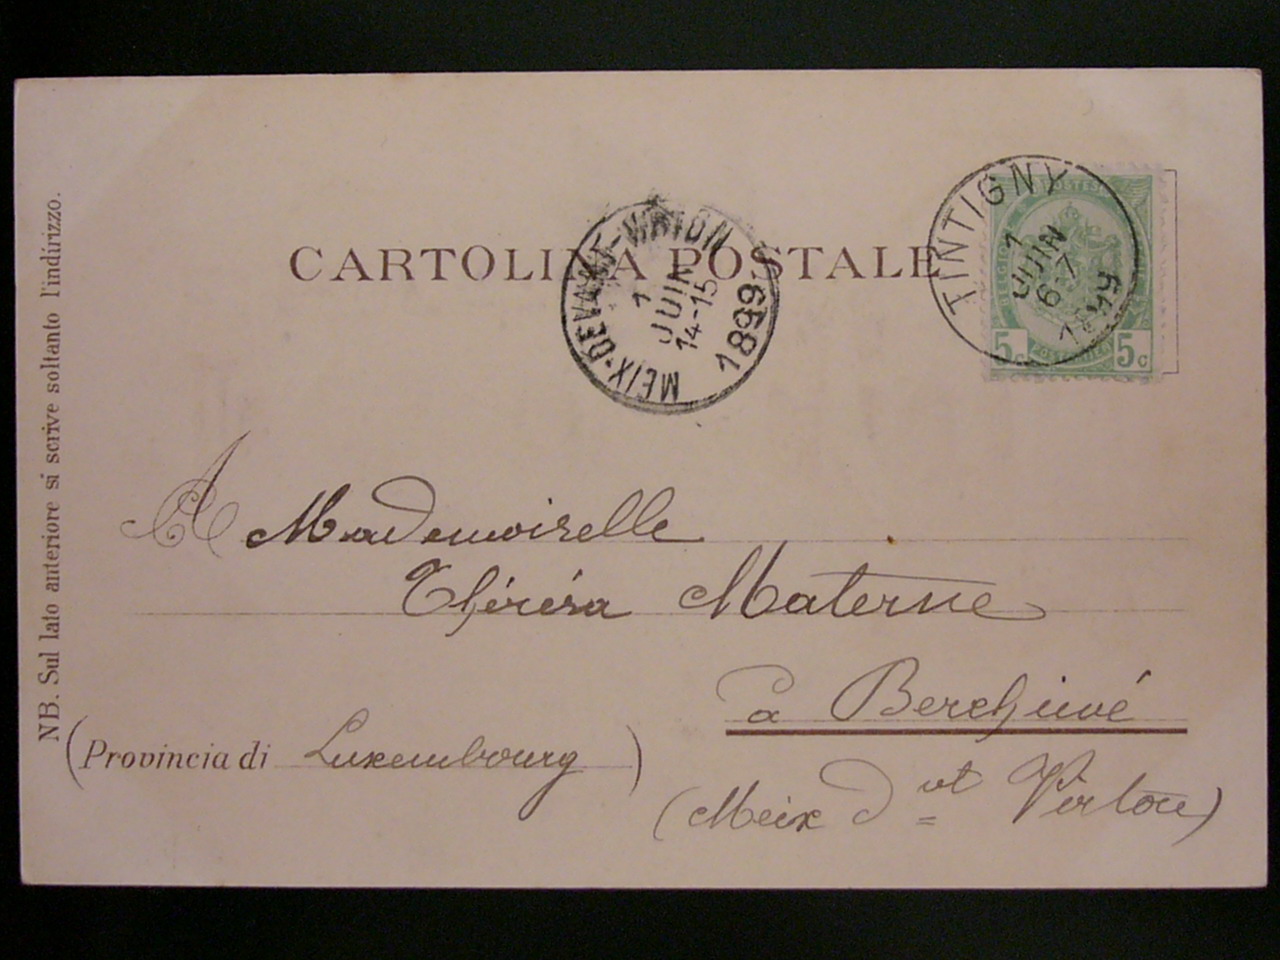 CARTOLINA POSTALE
NB. Sul lato anteriore si scrive soltanto l'indirizzo.
MEIX-DEVANT-VIRTON
1 JUIN
14-15
1899
TINTIGNY
1 JUIN
6-7
1899
5c 5c
A Mademoiselle
Thérésa Materne
à Berchiwé
(Provincia di Luxembourg)
(Meix dvt Virton)